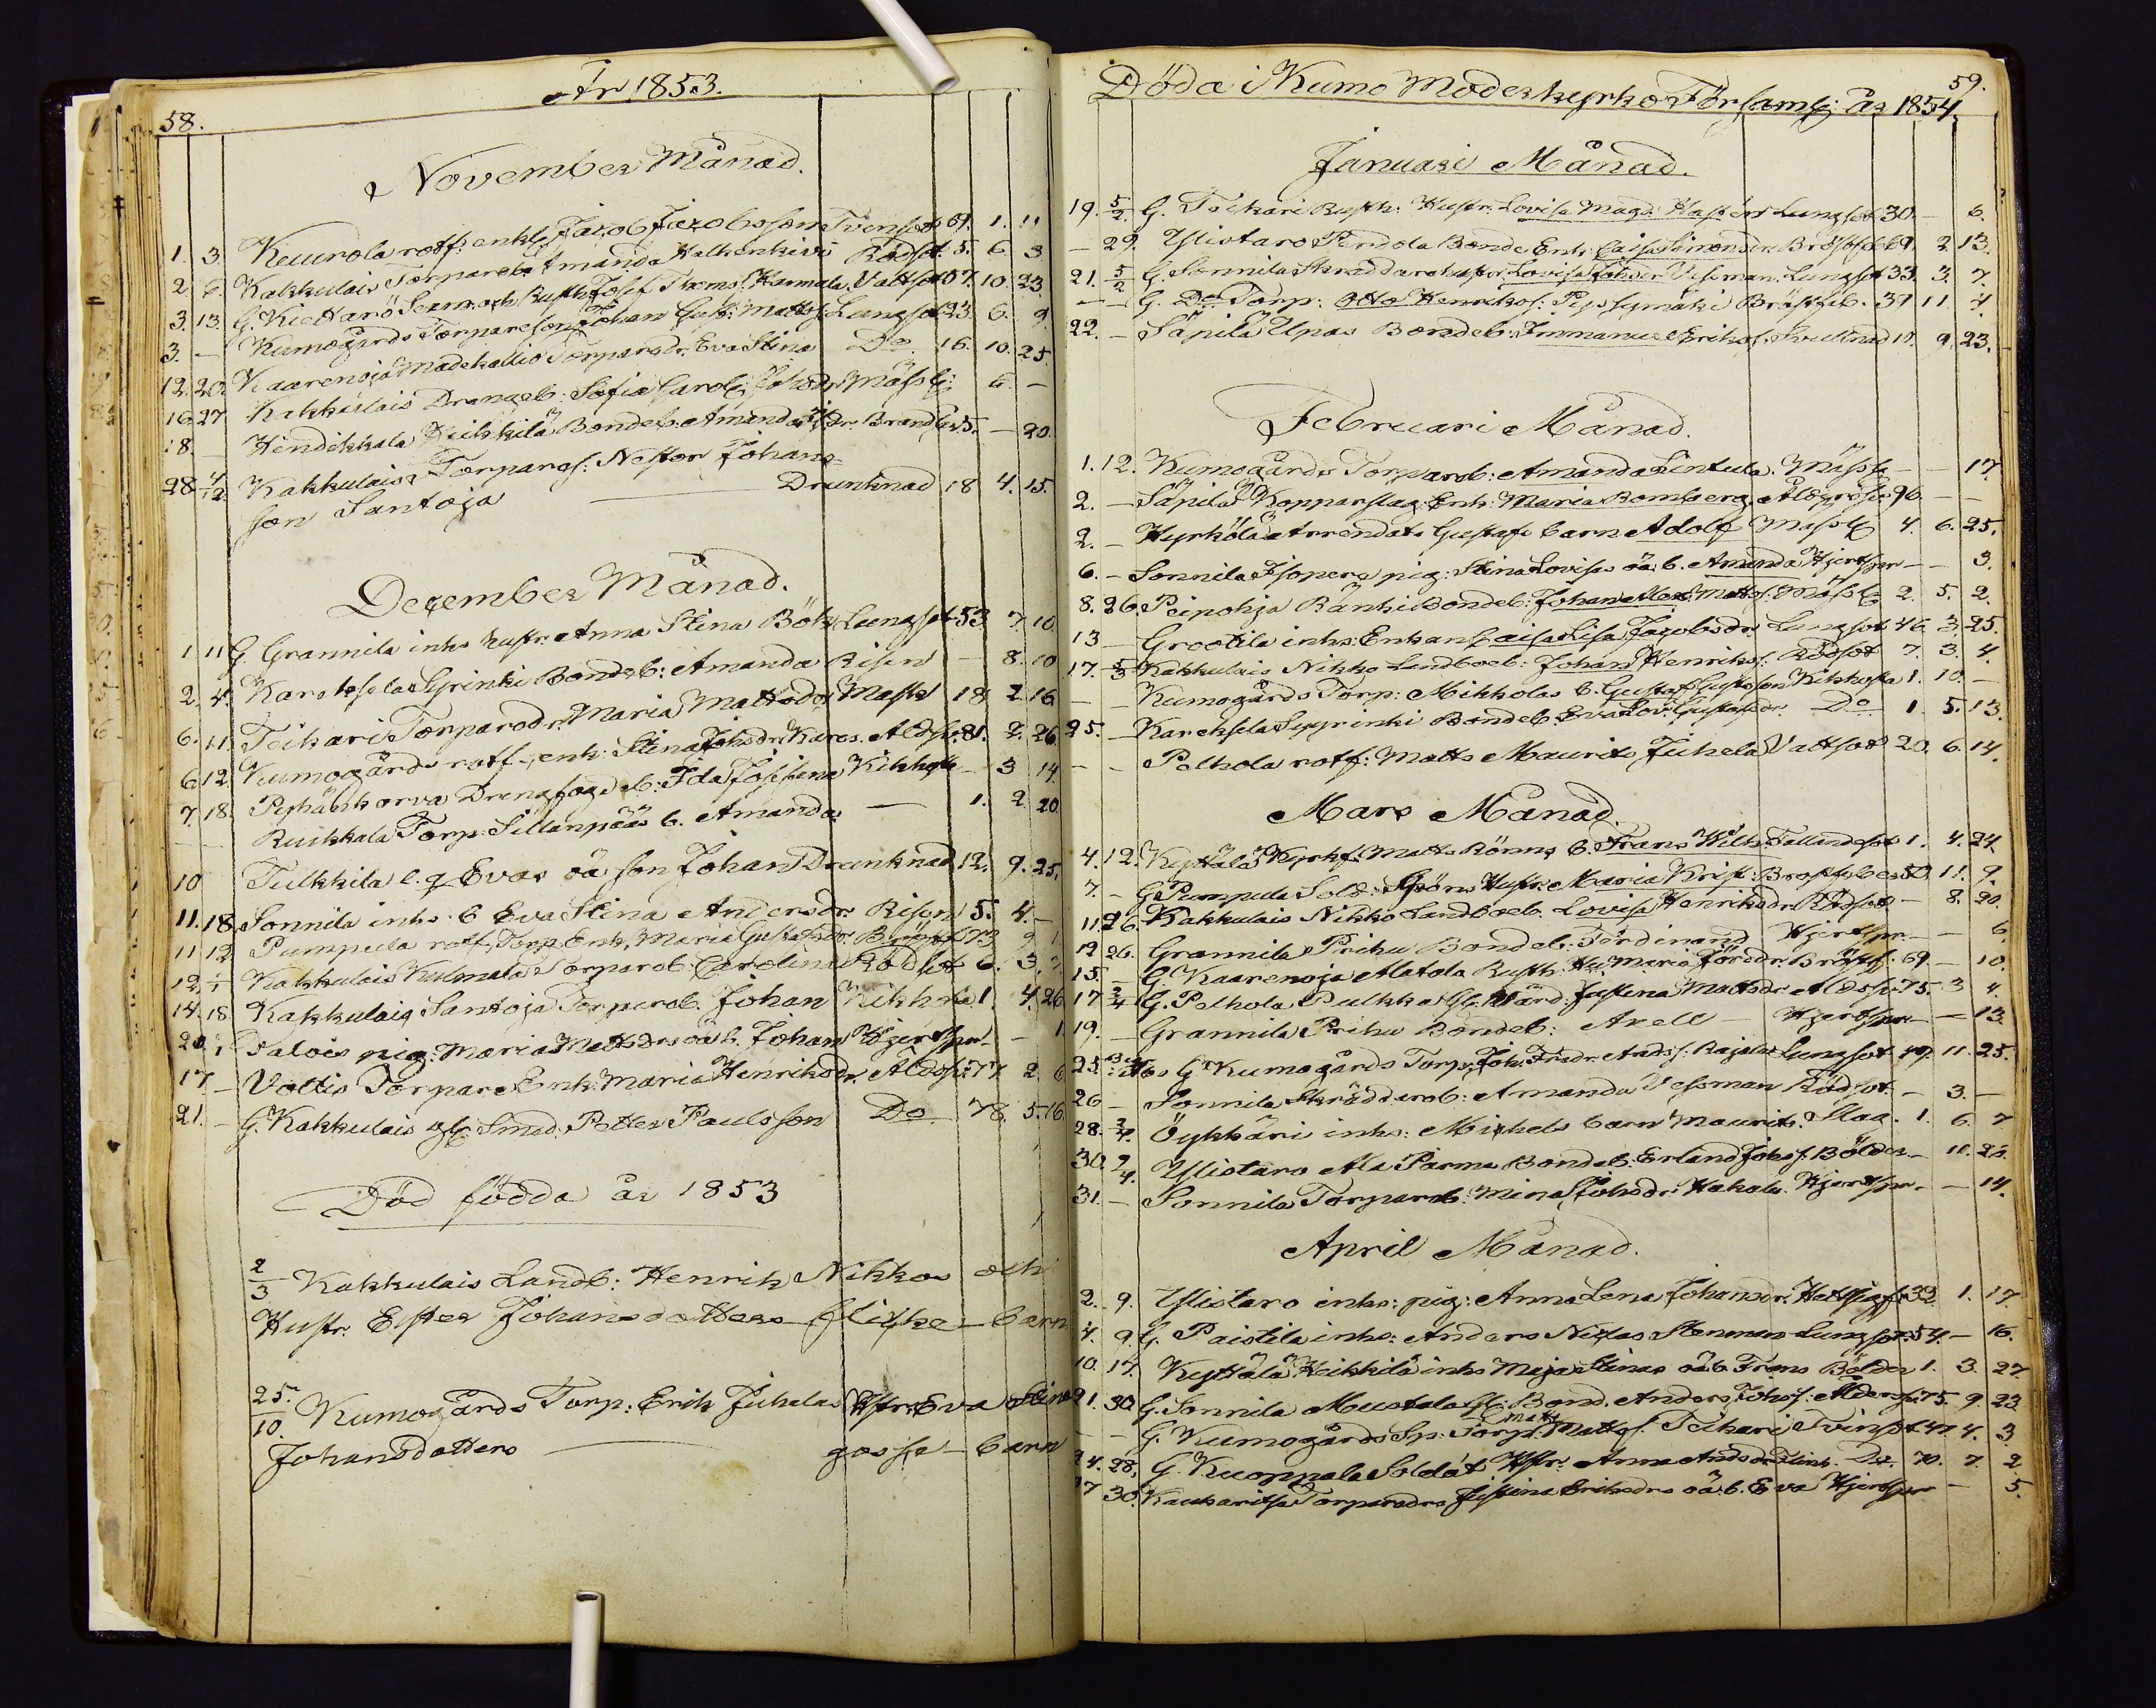 58.
År 1853.
November Månad.
1. 3. Keurola rotf: enkl. Jacob Jacobsson Tvinsot 69. 1. 11
2 6. Kakkulais Torpareb: Amanda Kalkenkivi Rödsot. 5. 6 3
3. 13. G. Kiettarö Seam och Rusth: Josef Thoms: Karmala Vattsot 57. 10. 23.
3. - Kumogårds Torpareson Johan Gust: Matts: Lungsot 23. 6. 9.
12. 20. Kaarenoja Madekallio Torparedr. Eva Stina Do 16. 10. 25.
16. 27 Kakkulais Drängeb: Sofia Carol: Johsdr Mässl: 6. -
18. - Hindikkala Heikkilä Bondeb: Amanda Brand 5. - 20.
28 4/12 Kakkulais Torpares: Nestor Johans=
son Santoja Drunknad 18 4. 15.
December Månad.
1 11 G. Grannila inhs hustr. Anna Stina Böök Lungsot 53 7. 10
2. 4. Karhesela Syrinki Bondeb: Amanda Risen - 8. 10
6. 11. Teikari Torparedr. Maria Mattsdr Mask 18 2 16
6. 12. Kumogårds rotf. enk: Stina Johsdr Karos. Aldsk. 81. 2. 26.
7. 18. Pyhänkorva Drengfoged b: Ida Josefina Kikhosta - 3 14.
- - Ruikkala Torp: Sillanpääs b. Amanda - 1. 2 20.
10 Tulkkila l. g. Evas oä son Johan Drunknad 12. 9. 25.
11. 18. Sonnila inhs b Eva Stina Andersdr. Risen 5. 4. -
11 12 Pumpula rotf. Torp. Enk. Maria Gustafsdr. Bröstf 73 9 1
12. Kakkulais Kulmala Torpareb. Carolina Rödsot 6. 3.
14. 18. Kakkulais Santoja Torpareb. Johan Kikhosta 1. 4. 26
20. Talois pig: Maria Mattsdrs oä b. Johan Hjertspr. - - 1
17. - Voltis Torpare Enk: Maria Henriksdr. Aldsk: 77 2. 6
21. - G. Kakkulais gl. Smed. Petter Paulsson Do 78. 5. 16
Död födda år 1853
2/3 Kakkulais Landb: Henrik Nikkos och
Hustr. Ester Johansdotters flicke-barn
25./10. Kumogårds Torp: Erik Juhelas Hstr. Eva Stina
Johansdotters gosse-barn
59.
Döda i Kumo Moderkyrko Församl: år 1854.
Januari Månad.
19. 5/2. G. Teikari Rusth: Hustr. Lovisa Magd: Lungsot 30. - 6.
- 29. Ylistaro Pendola Bonde Enk: Caisa Simonsdr. Bröstfeb 69. 2 13.
21. 5/2 G. Sonnila Skräddarehustr. Lovisa Johsdr. Vesman. Lungsot 33. 3. 7.
- - G. Do Torp: Otto Henriks: Pispymäki Bröstfeb. 39 11. 4.
22. - Säpilä Upas Bondeb: Immanuel Eriks. Svullnad 10. 9. 23.
Februari Månad.
1. 12. Kumogårds Torpareb: Amanda Lintula. Mässl - - 17.
2. - Säpilä Kopparslag: Enk: Maria Bomberg Åldr: 96. - -
2. - Hyrkölä Arrendat: Gustafs barn Adolf Mässl 4. 6. 25.
6. - Sonnila Isopere pig: Stina Lovisas oä b. Amanda Hjertspr - - 3.
8. 26. Peipohja Ränki Bondeb: Johan Alex: Matts. Mässl 2. 5. 2.
13 - Grootila inhs: Enkan Caisa Lisa Jacobsdr. Lungsot 46. 3. 25.
17. 5/3 Kakkulais Nikko Landboeb: Johan Henriks: Rödsot 7. 3. 4.
- - Kumogårds Torp: Mikkolas b. Gustaf Gustsson Kikhosta 1. 10. -
25. - Karehsela Sepyrinki Bondeb. Eva Lov: Gustafsdr. Do 1. 5. 13.
- - Pelhola rotf: Matts Maurits Juhela Vattsot 20. 6. 14.
Mars Månad.
4. 12. Kyttälä Kyrkf: Matts Rönns b. Frans Wilh. Fallandesot 1. 4. 24.
7. - G. Pumpula Sold. Spörs Hustr. Maria Krist: Brostfeber 50 11. 9.
11. 26. Kakkulais Nikko Landboeb. Lovisa Henriksdr. Rödsot - 8. 20.
12 26. Grannila Prihu Bondeb. Ferdinand Hjertspr. - - 6.
15. - G. Kaarenoja Alatola Rusth: Hu: Maria Förddr. Bröstf. 69. - 10.
17 2/4 G. Pelhola Pulkka Gl. Wärd: Justina Mattsdr Aldsk. 75. 3 4.
19. - Grannila Prihu Bondeb: Axell - Hjertspr - - 13.
25. Åbo G Kumogårds Torp: Joh: Fredr. Ands: Rajala Lungsot 49. 11. 25.
26 - Sonnila Skrädderb: Amanda Vesman Rödsot - 3. -
28. 2/4. Öykkäri inhs: Mickels barn Maurits. Slag. 1. 6. 7
30. 2/4. Ylistaro Ala Parma Bondeb: Erland Johs: Bölder - 11. 28.
31. - Sonnila Torpareb. Mina Johsdr. Hakala. Hjertspr. - - 14.
April Månad.
2. 9. Ylistaro inhs: pig: Anna Lena Johansdr. Hetsigf. 32 1. 17.
4. 9. G. Paistila inhs: Anders Niklas Stenman Lungsot. 54. - 16.
10. 17. Kyttälä Heikkilä inhs Maja Stinas oä b. Frans Bölder 1. 3. 27.
21. 30. G. Sonnila Mustala gl. Bond. Anders Johs: Ålders. 75. 9. 23
- - G. Kumogårds Sp: Torp: Matts Matts: Teikari Tvinsot 47 4. 3.
24. 28. G. Kuoppala Soldat Hstr. Anna Andsdr Flink. Do. 70. 7. 2.
27 30. Kauharitsa Torparedrs Justina Eriksdrs oä. b. Eva Hjertspr - - 5.